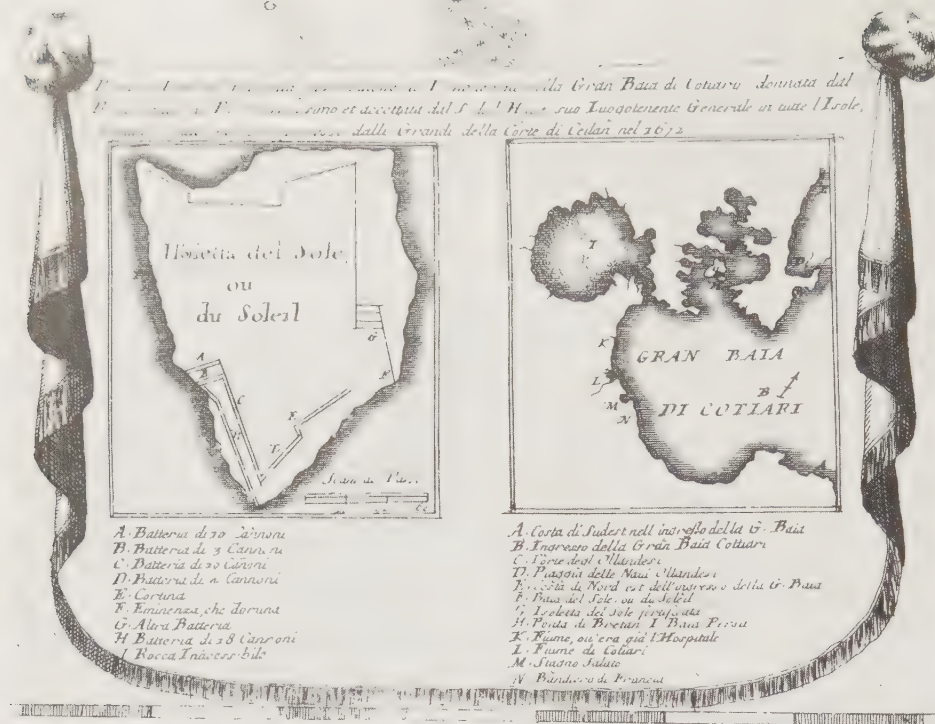 della Gran Baia di Cotiary donnata dal
et accettata dal suo Luogotenente Generale in tutte l'Isole,
dalli Grandi della Corte di Ceilan nel 1672
del Sole
ou
du Soleil
A
B
C
G
N
F
Scala di
I
K
L
M
N
GRAN BAIA
B
DI COTIARI
A. Batteria di 10 Cannoni
B. Batteria di 3 Cannoni
C. Batteria di 10 Canoni
D. Batteria di 2 Cannoni
E. Cortina
F. Eminenza che domina
G. Altra Batteria
H Batteria di 18 Cannoni
I. Rocca Inaccessibile
A. Costa di Sudest nell ingresso della G. Baia
B. Ingresso della Gran Baia Cottiari
C. Forte degl Ollandesi
D. Piaggia delle Naui Ollandesi
E. Costa di Nord est dell'ingresso della G. Baia
F. Baia del Sole ou du Soleil
G. Isoletta del Sole fortificata
H. Ponta di Bretan I Baia
K. Fiume, ou'era già l'Hospitale
L. Fiume di Cotiari
M. Stagno Salato
N. Bandiera di Francia